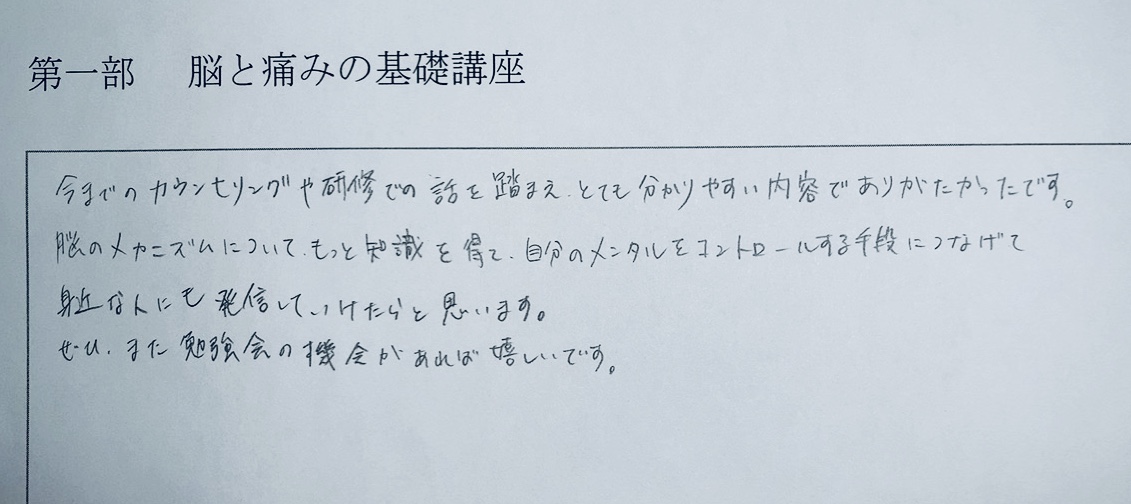 第一部　脳と痛みの基礎講座
今までのカウンセリングや研修での話を踏まえ、とても分かりやすい内容でありがたかったです。
脳のメカニズムについて、もっと知識を得て、自分のメンタルをコントロールする手段につなげて
身近な人にも発信していけたらと思います。
ぜひ、また勉強会の機会があれば嬉しいです。